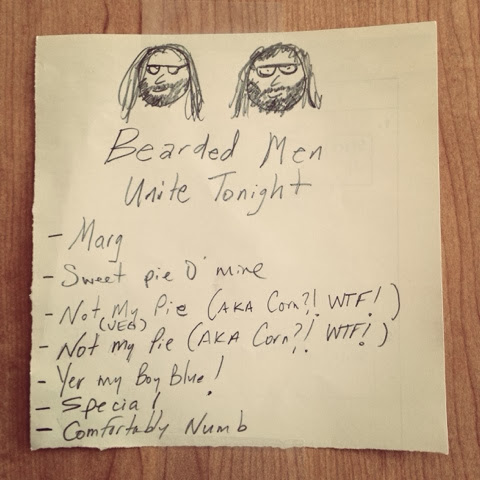 Bearded Men
Unite Tonight
- Marg
- Sweet pie O' mine
- Not My Pie (AKA Corn?! WTF!)
(VEG)
- Not my Pie (AKA Corn?! WTF!)
- Yer my Boy Blue!
- Special
- Comfortably Numb